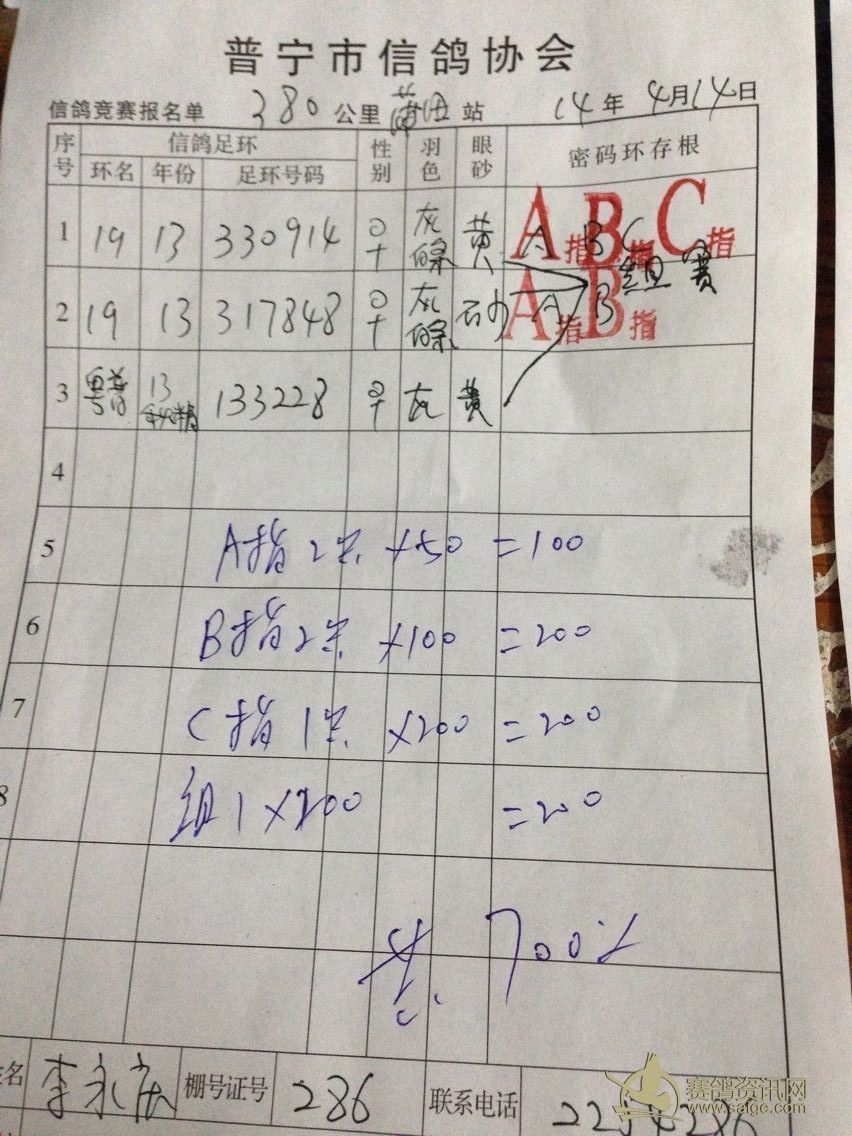 普宁市信鸽协会
信鸽竞赛报名单 380 公里 莆田 站 14年 4月14日
序号 信鸽足环 性别 羽色 眼砂 密码环存根
环名 年份 足环号码
1 19 13 330914 ♀ 灰 黄 A指 B指 C指 A B C
2 19 13 317848 ♀ 灰 砂 A指 B指 A B 组赛
3 粤普 13 133228 ♀ 灰 黄
4
5 A指2只 ×50 =100
6 B指2只 ×100 =200
7 C指1只 ×200 =200
8 组1×200 =200
共. 700元
姓名 李永 棚号证号 286 联系电话
赛鸽资讯网
www.saige.com